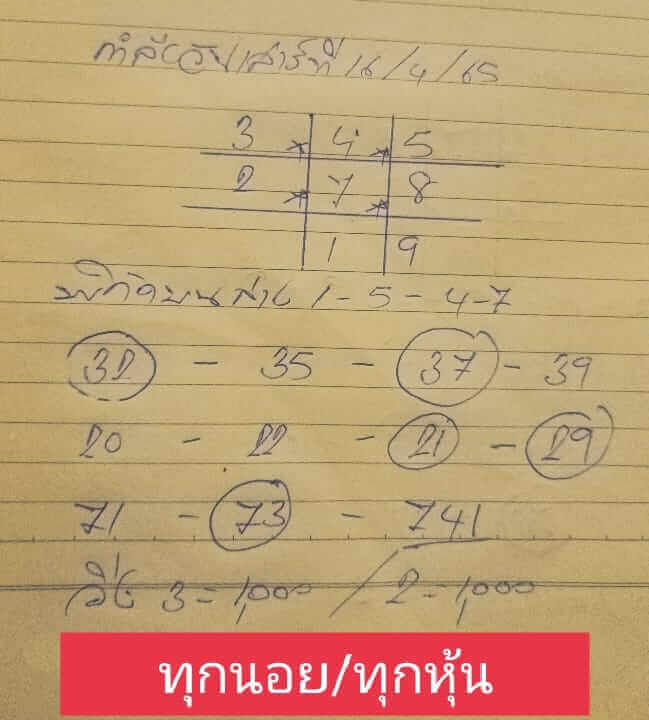 กำลังวันเสาร์ที่ 16/4/65
3 × 4 × 5
2 × 7 × 8
1 9
1-5-4-7
32 - 35 - 37 - 39
20 - 22 - 21 - 29
71 - 73 - 741
วิ่ง 3 = 1,000 / 2 = 1,000
ทุกนอย/ทุกหุ้น